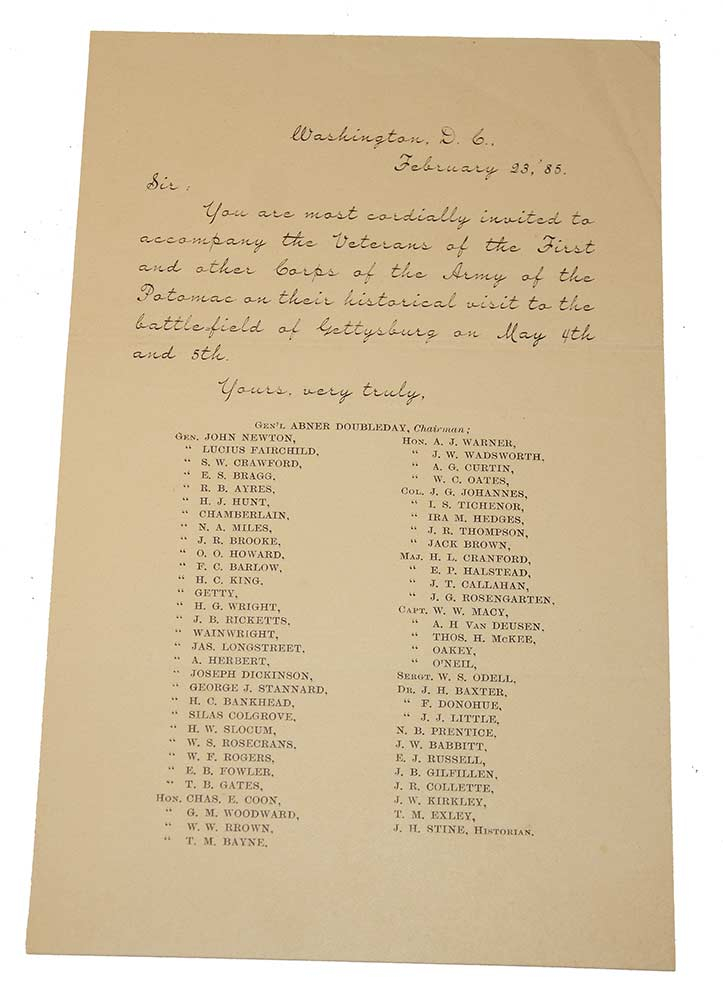 Washington, D. C.,
February 23, '85.
Sir:
You are most cordially invited to
accompany the Veterans of the First
and other Corps of the Army of the
Potomac on their historical visit to the
battle-field of Gettysburg on May 4th
and 5th.
Yours, very truly,
GEN'L ABNER DOUBLEDAY, Chairman;
GEN. JOHN NEWTON,
" LUCIUS FAIRCHILD,
" S. W. CRAWFORD,
" E. S. BRAGG,
" R. B. AYRES,
" H. J. HUNT,
" CHAMBERLAIN,
" N. A. MILES,
" J. R. BROOKE,
" O. O. HOWARD,
" F. C. BARLOW,
" H. C. KING,
" GETTY,
" H. G. WRIGHT,
" J. B. RICKETTS,
" WAINWRIGHT,
" JAS. LONGSTREET,
" A. HERBERT,
" JOSEPH DICKINSON,
" GEORGE J. STANNARD,
" H. C. BANKHEAD,
" SILAS COLGROVE,
" H. W. SLOCUM,
" W. S. ROSECRANS,
" W. F. ROGERS,
" E. B. FOWLER,
" T. B. GATES,
HON. CHAS. E. COON,
" G. M. WOODWARD,
" W. W. BROWN,
" T. M. BAYNE,
HON. A. J. WARNER,
" J. W. WADSWORTH,
" A. G. CURTIN,
" W. C. OATES,
COL. J. G. JOHANNES,
" I. S. TICHENOR,
" IRA M. HEDGES,
" J. R. THOMPSON,
" JACK BROWN,
MAJ. H. L. CRANFORD,
" E. P. HALSTEAD,
" J. T. CALLAHAN,
" J. G. ROSENGARTEN,
CAPT. W. W. MACY,
" A. H VAN DEUSEN,
" THOS. H. McKEE,
" OAKEY,
" O'NEIL,
SERGT. W. S. ODELL,
DR. J. H. BAXTER,
" F. DONOHUE,
" J. J. LITTLE,
N. B. PRENTICE,
J. W. BABBITT,
E. J. RUSSELL,
J. B. GILFILLEN,
J. R. COLLETTE,
J. W. KIRKLEY,
T. M. EXLEY,
J. H. STINE, HISTORIAN.